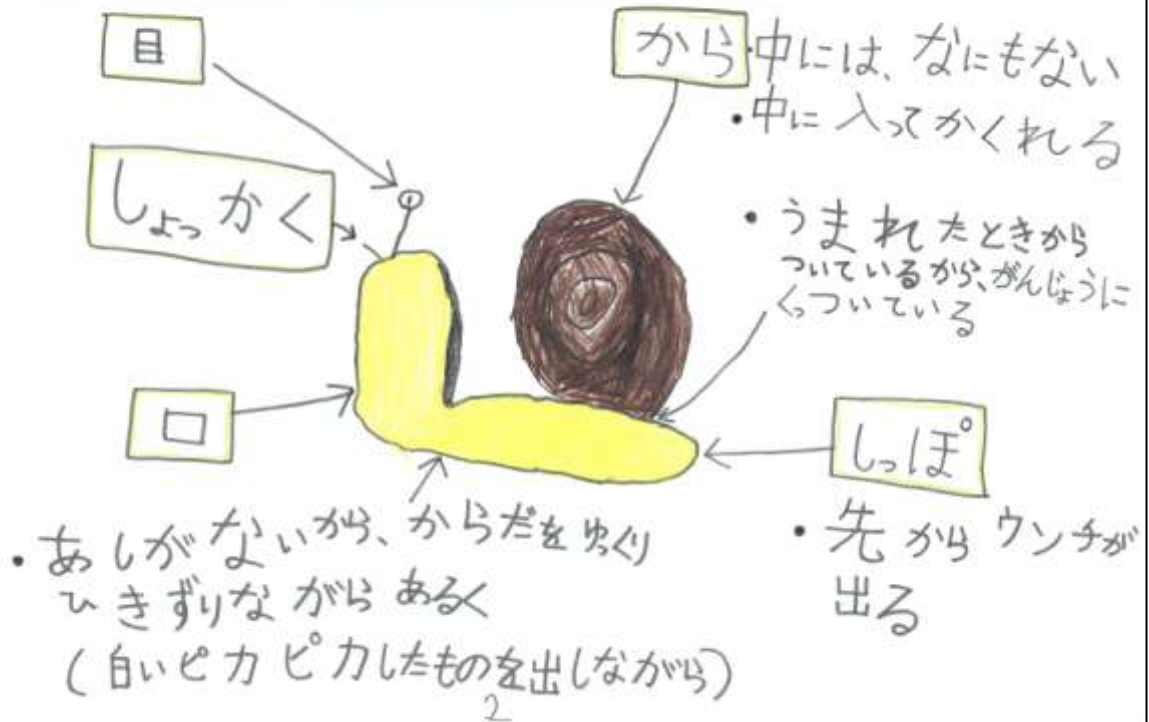 目
から
・中には、なにもない
・中に入ってかくれる
しょっかく
・うまれたときから
ついているから、がんじょうに
くっついている
口
しっぽ
・先からウンチが
出る
・あしがないから、からだをゆっくり
ひきずりながらあるく
(白いピカピカしたものを出しながら)
2